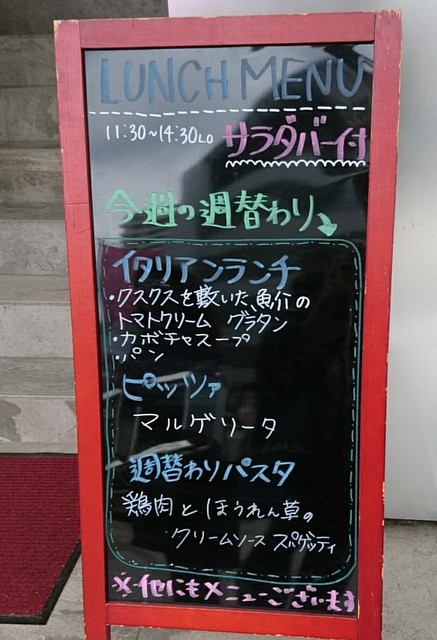 LUNCH MENU
11:30~14:30LO サラダバー付
今週の週替わり
イタリアンランチ
・クスクスを敷いた魚介の
トマトクリーム グラタン
・カボチャスープ
・パン
ピッツァ
マルゲリータ
週替わりパスタ
鶏肉とほうれん草の
クリームソース スパゲッティ
※他にもメニューございます